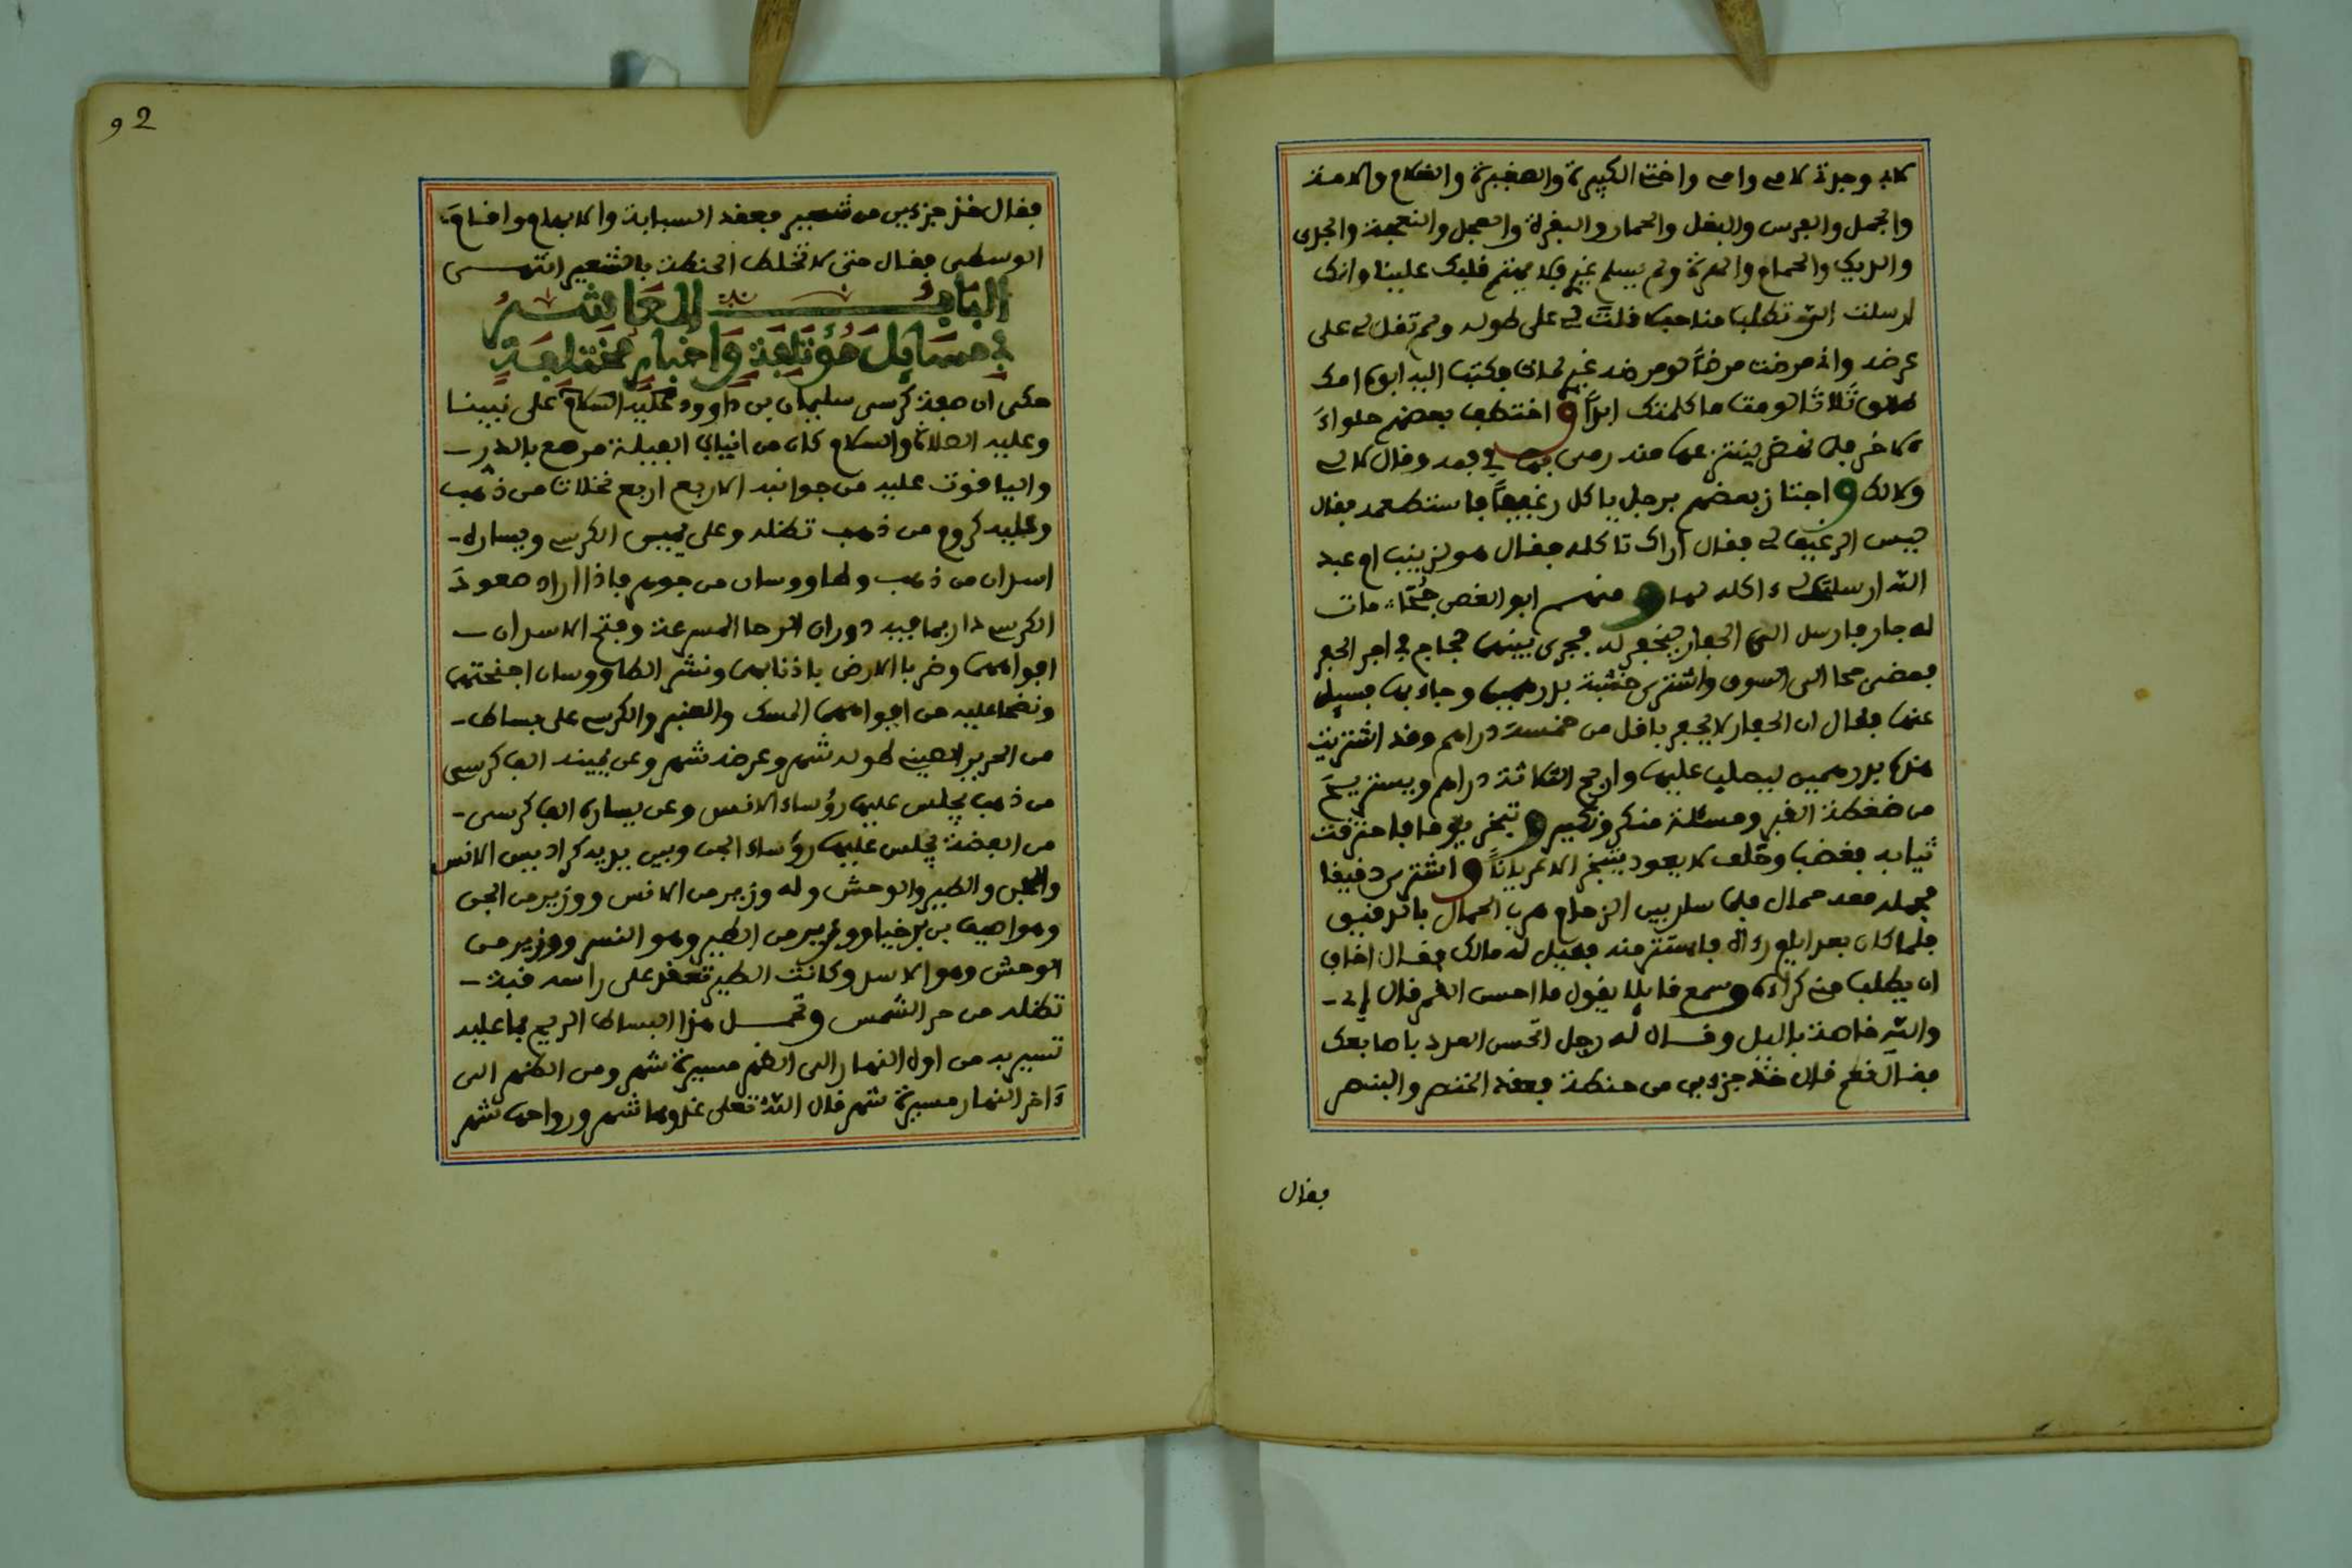 لاب وجدة لام وام واخت الكبيرة والصغيرة والغلام والامة
والجمل والفرس والبغل والحمار والبقرة والعجل والنعجة والجدي
والديك والحمام والهرة ولم يسلم غيرك فلا يهتم قلبك علينا وانك
ارسلت الي تطلب مناحب قلت لي على طوله ولم تقل لي على
عرضه واني مرضت مرضاً لو مرضه غيري لمات فكتب اليه ابوه امك
طالق ثلاثا لو مت ما كلمتك ابداً و اختطف بعضهم حلواء
لاخر فلما نهض لينتزعها منه رمى بها في فمه وقال لا لي
ولا لك و اجتاز بعضهم برجل ياكل رغيفاً فاستطعمه فقال
ليس الرغيف لي فقال اراك تاكله فقال هو لزينب ام عبد
الله ارسلتني ءاكله لها و منهم ابو الغصن جحا مات
له جار فارسل الى الحفار ليحفر له فجرى بينهما لجاج في اجر الحفر
فمضى جحا الى السوق واشترى خشبة بدرهمين وجاء بها فسيل
عنها فقال ان الحفار لا يحفر باقل من خمسة دراهم وقد اشتريت
هذه بدرهمين ليصلب عليها واربح الثلاثة دراهم ويستريح
من ضغطة القبر ومسئلة منكر ونكير و تبخر يوما فاحترقت
ثيابه فغضب وحلف لا يعود يتبخر الا عرياناً و اشترى دقيقا
فحمله معه حمال فلما سار بين الزحام هرب الحمال بالدقيق
فلما كان بعد ايام رءاه فاستتر منه فقيل له مالك فقال اخاف
ان يطلب مني كراءه و سمع قايلا يقول ما احسن القمر قال اي
والله خاصة بالليل وقال له رجل اتحسن العدد باصابعك
فقال نعم قال خذ جزءين من حنطة فعقد الخنصر والبنصر
فقال
92
فقال خذ جزءين من شعير فعقد السبابة والابهام واقام
الوسطى فقال حتى لا تختلط الحنطة بالشعير انتهى
الباب العاشر
في مسايل مؤتلفة واخبار مختلفة
حكى ان صفة كرسي سليمان بن داوود عليه السلام على نبينا
وعليه الصلاة والسلام كان من انياب الفيلة مرصع بالدر
والياقوت عليه من جوانبه الاربع اربع نخلات من ذهب
وعليه كروم من ذهب تظله وعلى يمين الكرسي ويساره
اسدان من ذهب وطاووسان من جوهر فاذا اراد صعود
الكرسي دار بما فيه دوران الرحا المسرعة وفتح الاسدان
افواههما وضربا الارض باذنابهما ونشر الطاووسان اجنحتهما
ونضحا عليه من افواههما المسك والعنبر والكرسي على بساط
من الحرير الصيني طوله شهر وعرضه شهر وعن يمينه الف كرسي
من ذهب يجلس عليها رؤساء الانس وعن يساره الف كرسي
من الفضة يجلس عليها رؤساء الجن وبين يديه كراديس الانس
والجن والطير والوحش وله وزير من الانس ووزير من الجن
وهو اصيف بن برخيا ووزير من الطير وهو النسر ووزير من
الوحش وهو الاسد وكانت الطير تعقد على راسه قبة
تظله من حر الشمس وتحمل هذا البساط الريح بما عليه
تسير به من اول النهار الى الظهر مسيرة شهر ومن الظهر الى
ءاخر النهار مسيرة شهر قال الله تعلى غدوها شهر ورواحها شهر